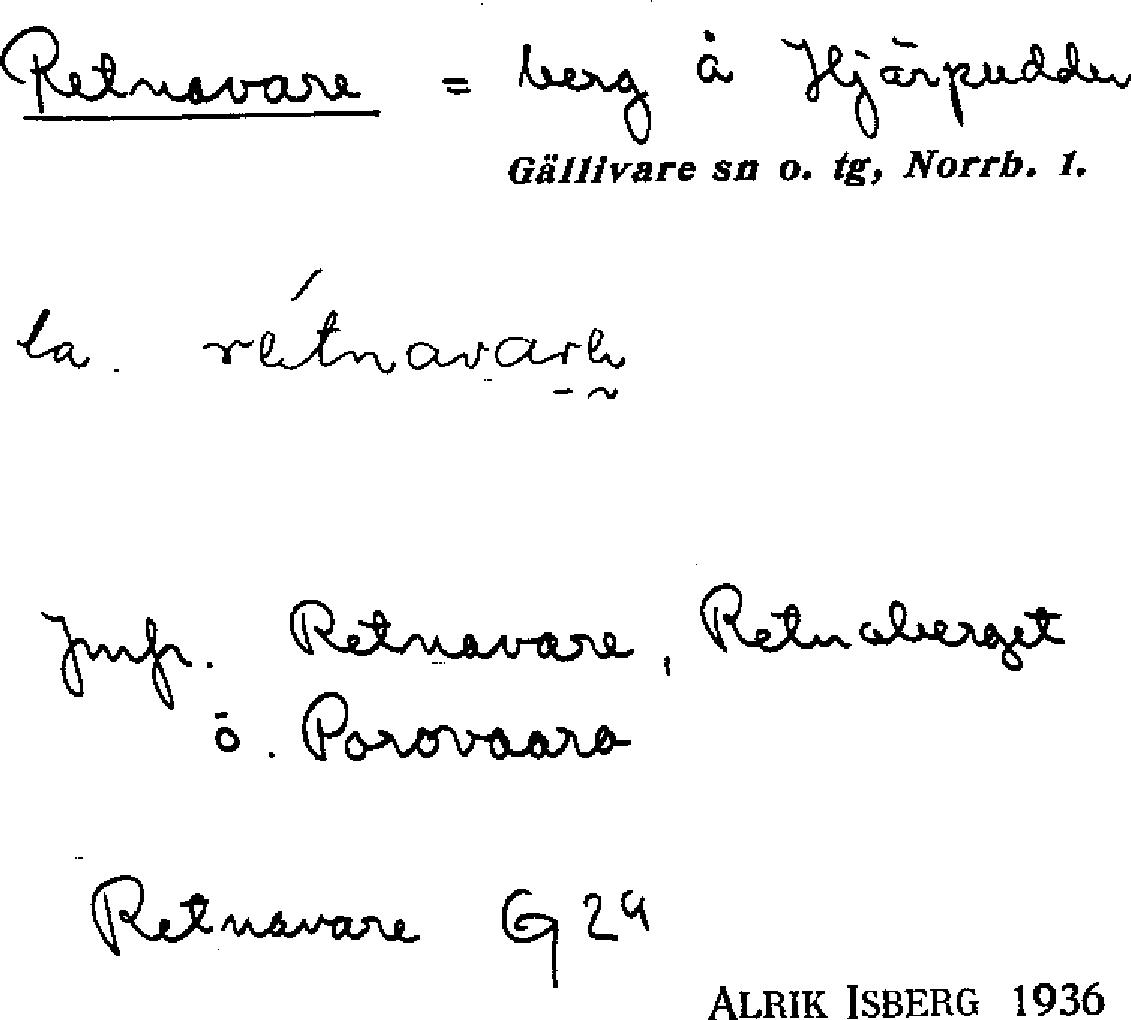 Retnavare = berg å Hjärpudden
Gällivare sn o. tg, Norrb. l.
la. rétnavare
Jmfr. Retnavare, Retnaberget
ö. Porovaara
Retnavare G 2a
ALRIK ISBERG 1936